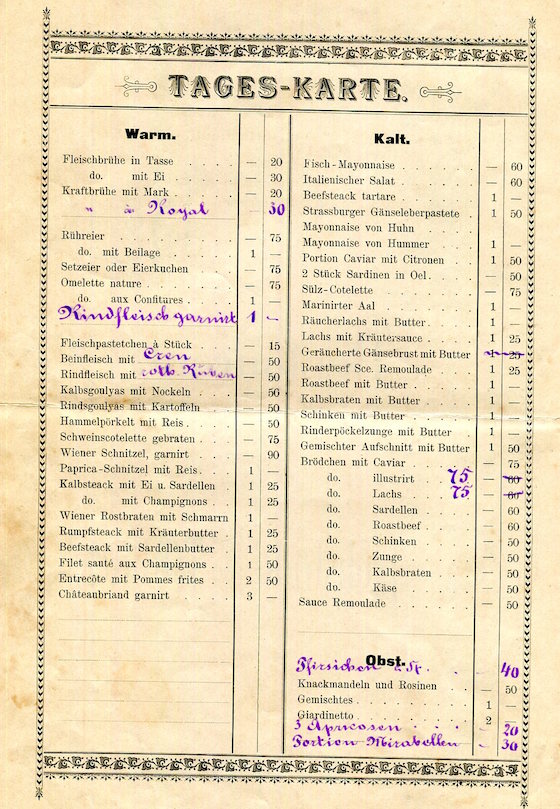 TAGES-KARTE.
Warm.
Fleischbrühe in Tasse . . . . — 20
do. mit Ei . . . . — 30
Kraftbrühe mit Mark . . . . — 20
" à Royal 30
Rühreier . . . . . — 75
do. mit Beilage . . . . 1 —
Setzeier oder Eierkuchen — 75
Omelette nature . . . . — 75
do. aux Confitures . . 1 —
Rindfleisch garnirt 1 —
Fleischpastetchen à Stück — 15
Beinfleisch mit Cren — 50
Rindfleisch mit roth. Rüben — 50
Kalbsgoulyas mit Nockeln . — 50
Rindsgoulyas mit Kartoffeln — 50
Hammelpörkelt mit Reis . . — 50
Schweinscotelette gebraten — 75
Wiener Schnitzel, garnirt . — 90
Paprica-Schnitzel mit Reis . . 1 —
Kalbsteack mit Ei u. Sardellen . 1 25
do. mit Champignons . 1 25
Wiener Rostbraten mit Schmarrn 1 —
Rumpfsteack mit Kräuterbutter . 1 25
Beefsteack mit Sardellenbutter . 1 25
Filet sauté aux Champignons . 1 50
Entrecôte mit Pommes frites . . 2 50
Châteaubriand garnirt . . . 3 —
Kalt.
Fisch-Mayonnaise . . . . — 60
Italienischer Salat . . . . — 60
Beefsteack tartare . . . . 1 —
Strassburger Gänseleberpastete . 1 50
Mayonnaise von Huhn
Mayonnaise von Hummer . . 1 —
Portion Caviar mit Citronen . 1 50
2 Stück Sardinen in Oel . . . — 50
Sülz-Cotelette . . . . — 75
Marinirter Aal . . . . 1 —
Räucherlachs mit Butter . . . 1 —
Lachs mit Kräutersauce . . . 1 25
Geräucherte Gänsebrust mit Butter 1 25
Roastbeef Sce. Remoulade . . 1 25
Roastbeef mit Butter . . . 1 —
Kalbsbraten mit Butter . . . 1 —
Schinken mit Butter . . . 1 —
Rinderpöckelzunge mit Butter . 1 —
Gemischter Aufschnitt mit Butter 1 50
Brödchen mit Caviar . . . — 75
do. illustrirt 75 — 60
do. Lachs . 75 — 60
do. Sardellen . . — 60
do. Roastbeef . . — 60
do. Schinken . . — 50
do. Zunge . . — 50
do. Kalbsbraten . . — 50
do. Käse . . — 50
Sauce Remoulade . . . . — 50
Obst.
Pfirsichen à St. - 40
Knackmandeln und Rosinen . . — 50
Gemischtes . . . . 1 —
Giardinetto . . . . 2 —
3 Aprikosen - 20
Portion Mirabellen - 30